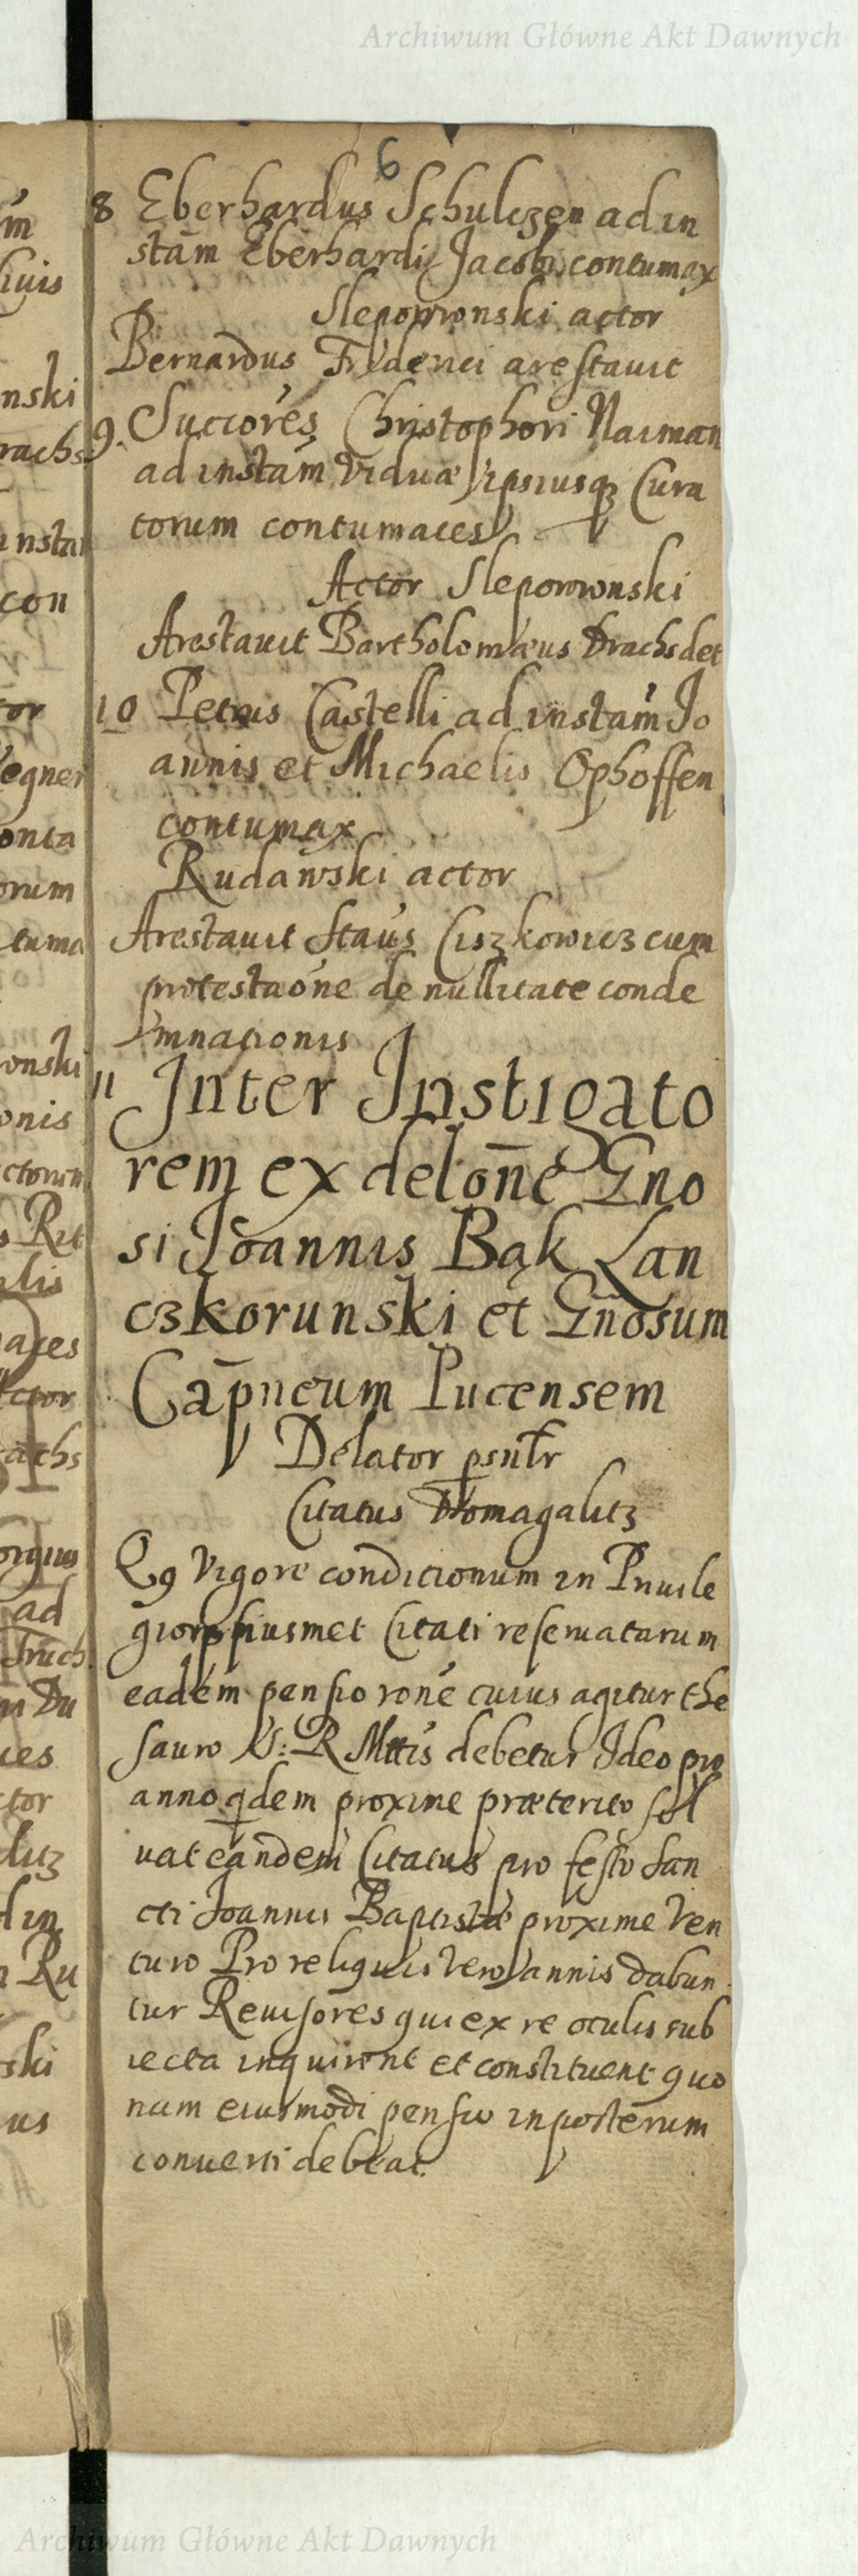 Archiwum Główne Akt Dawnych
6
8 Eberhardus Schulczen ad in
stam Eberhardi Jacobi contumax
Slepowronski actor
Bernardus Friderici arestavit
9. Succóres Christophori Naiman
ad instam Viduæ ipsiusq3 Cura
torum contumaces
Actor Slepowronski
Arestavit Bartholomæus Drachsdet
10 Petrus Castelli ad instam Jo
annis et Michaelis Ophoffen
contumax
Rudawski actor
Arestavit Staus Ciszkowicz cum
protestaóne de nullitate conde
mnationis
11 Inter Instigato
rem ex delone Gno
si Joannis Bąk Lan
czkorunski et Gnosum
Capneum Pucensem
Delator psnlr
Citatus Domagalitz
Qq Vigore conditionum in Privile
gior ipsiusmet Citati reservatarum
eadem pensio rone cuius agitur the
sauro S: R Mttis debetur Ideo pro
anno qdem proxime præterito sol
vat eandem Citatus pro festo San
cti Joannis Baptistæ proxime Ven
turo Pro reliquis vero annis dabun
tur Revisores qui ex re oculis sub
iecta inquirent et constituent quo
nam eiusmodi pensio inposterum
converti debeat.
Archiwum Główne Akt Dawnych